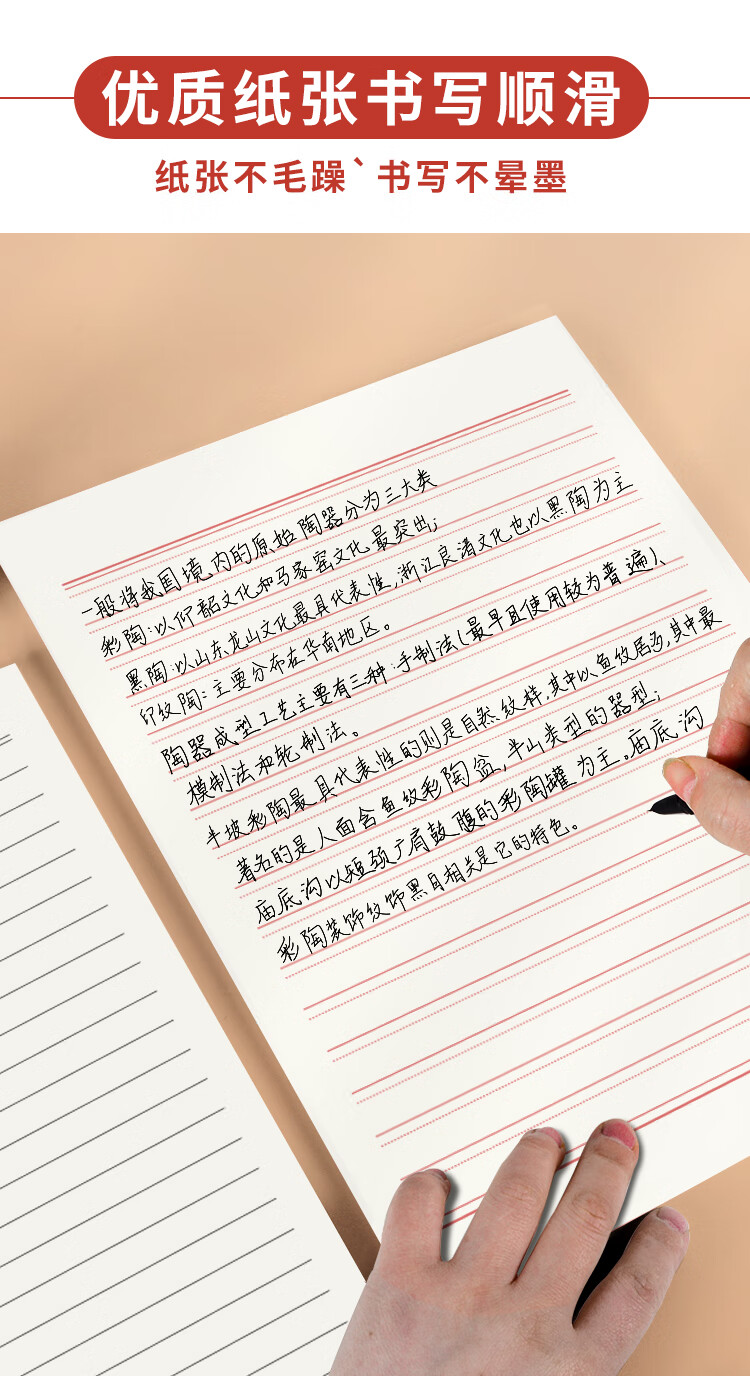 优质纸张书写顺滑
纸张不毛躁`书写不晕墨
一般将我国境内的原始陶器分为三大类
彩陶:以仰韶文化和马家窑文化最突出;
黑陶:以山东龙山文化最具代表性,浙江良渚文化也以黑陶为主
印纹陶:主要分布在华南地区。
陶器成型工艺主要有三种:手制法(最早且使用较为普遍)、
模制法和轮制法。
半坡彩陶最具代表性的则是自然纹样,其中以鱼纹居多,其中最
著名的是人面含鱼纹彩陶盆,半山类型的器型;
庙底沟以短颈广肩鼓腹的彩陶罐为主。庙底沟
彩陶装饰纹饰黑目相关是它的特色。